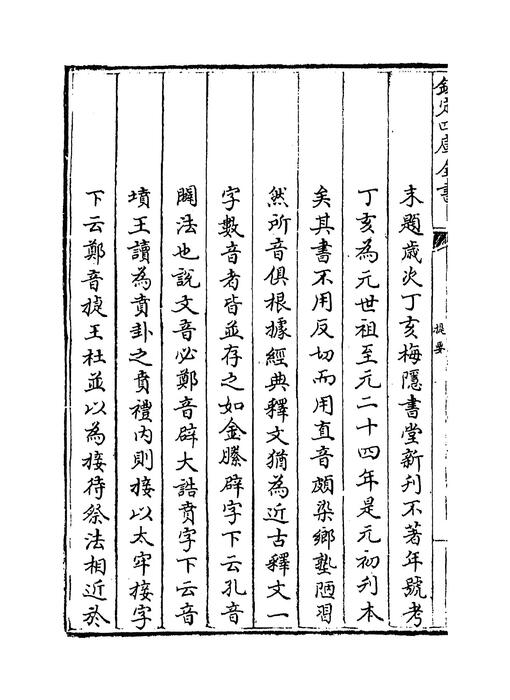 欽定四庫全書
提要
末題歲次丁亥梅隱書堂新刋不著年號考
丁亥為元世祖至元二十四年是元初刋本
矣其書不用反切而用直音頗染鄉塾陋習
然所音俱根據經典釋文猶為近古釋文一
字數音者皆並存之如金縢辟字下云孔音
闢法也說文音必鄭音辟大誥賁字下云音
墳王讀為賁卦之賁禮內則接以太牢接字
下云鄭音㨗王杜並以為接待祭法相近於